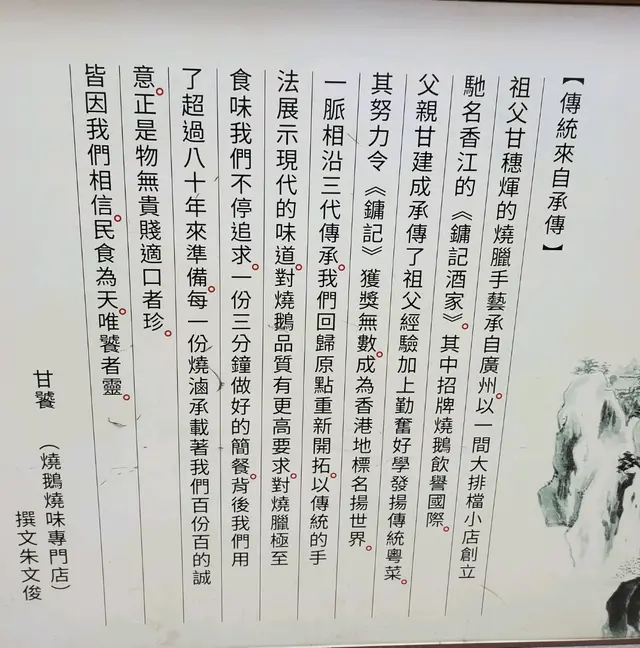 【傳統來自承傳】
祖父甘穗煇的燒臘手藝承自廣州。以一間大排檔小店創立
馳名香江的《鏞記酒家》。其中招牌燒鵝飲譽國際。
父親甘建成承傳了祖父經驗加上勤奮好學發揚傳統粵菜。
其努力令《鏞記》獲獎無數。成為香港地標名揚世界。
一脈相沿三代傳承。我們回歸原點重新開拓。以傳統的手
法展示現代的味道。對燒鵝品質有更高要求。對燒臘極至
食味我們不停追求。一份三分鐘做好的簡餐。背後我們用
了超過八十年來準備。每一份燒滷承載著我們百份百的誠
意。正是物無貴賤適口者珍。
皆因我們相信。民食為天。唯饕者靈。
甘饕 (燒鵝燒味專門店)
撰文朱文俊